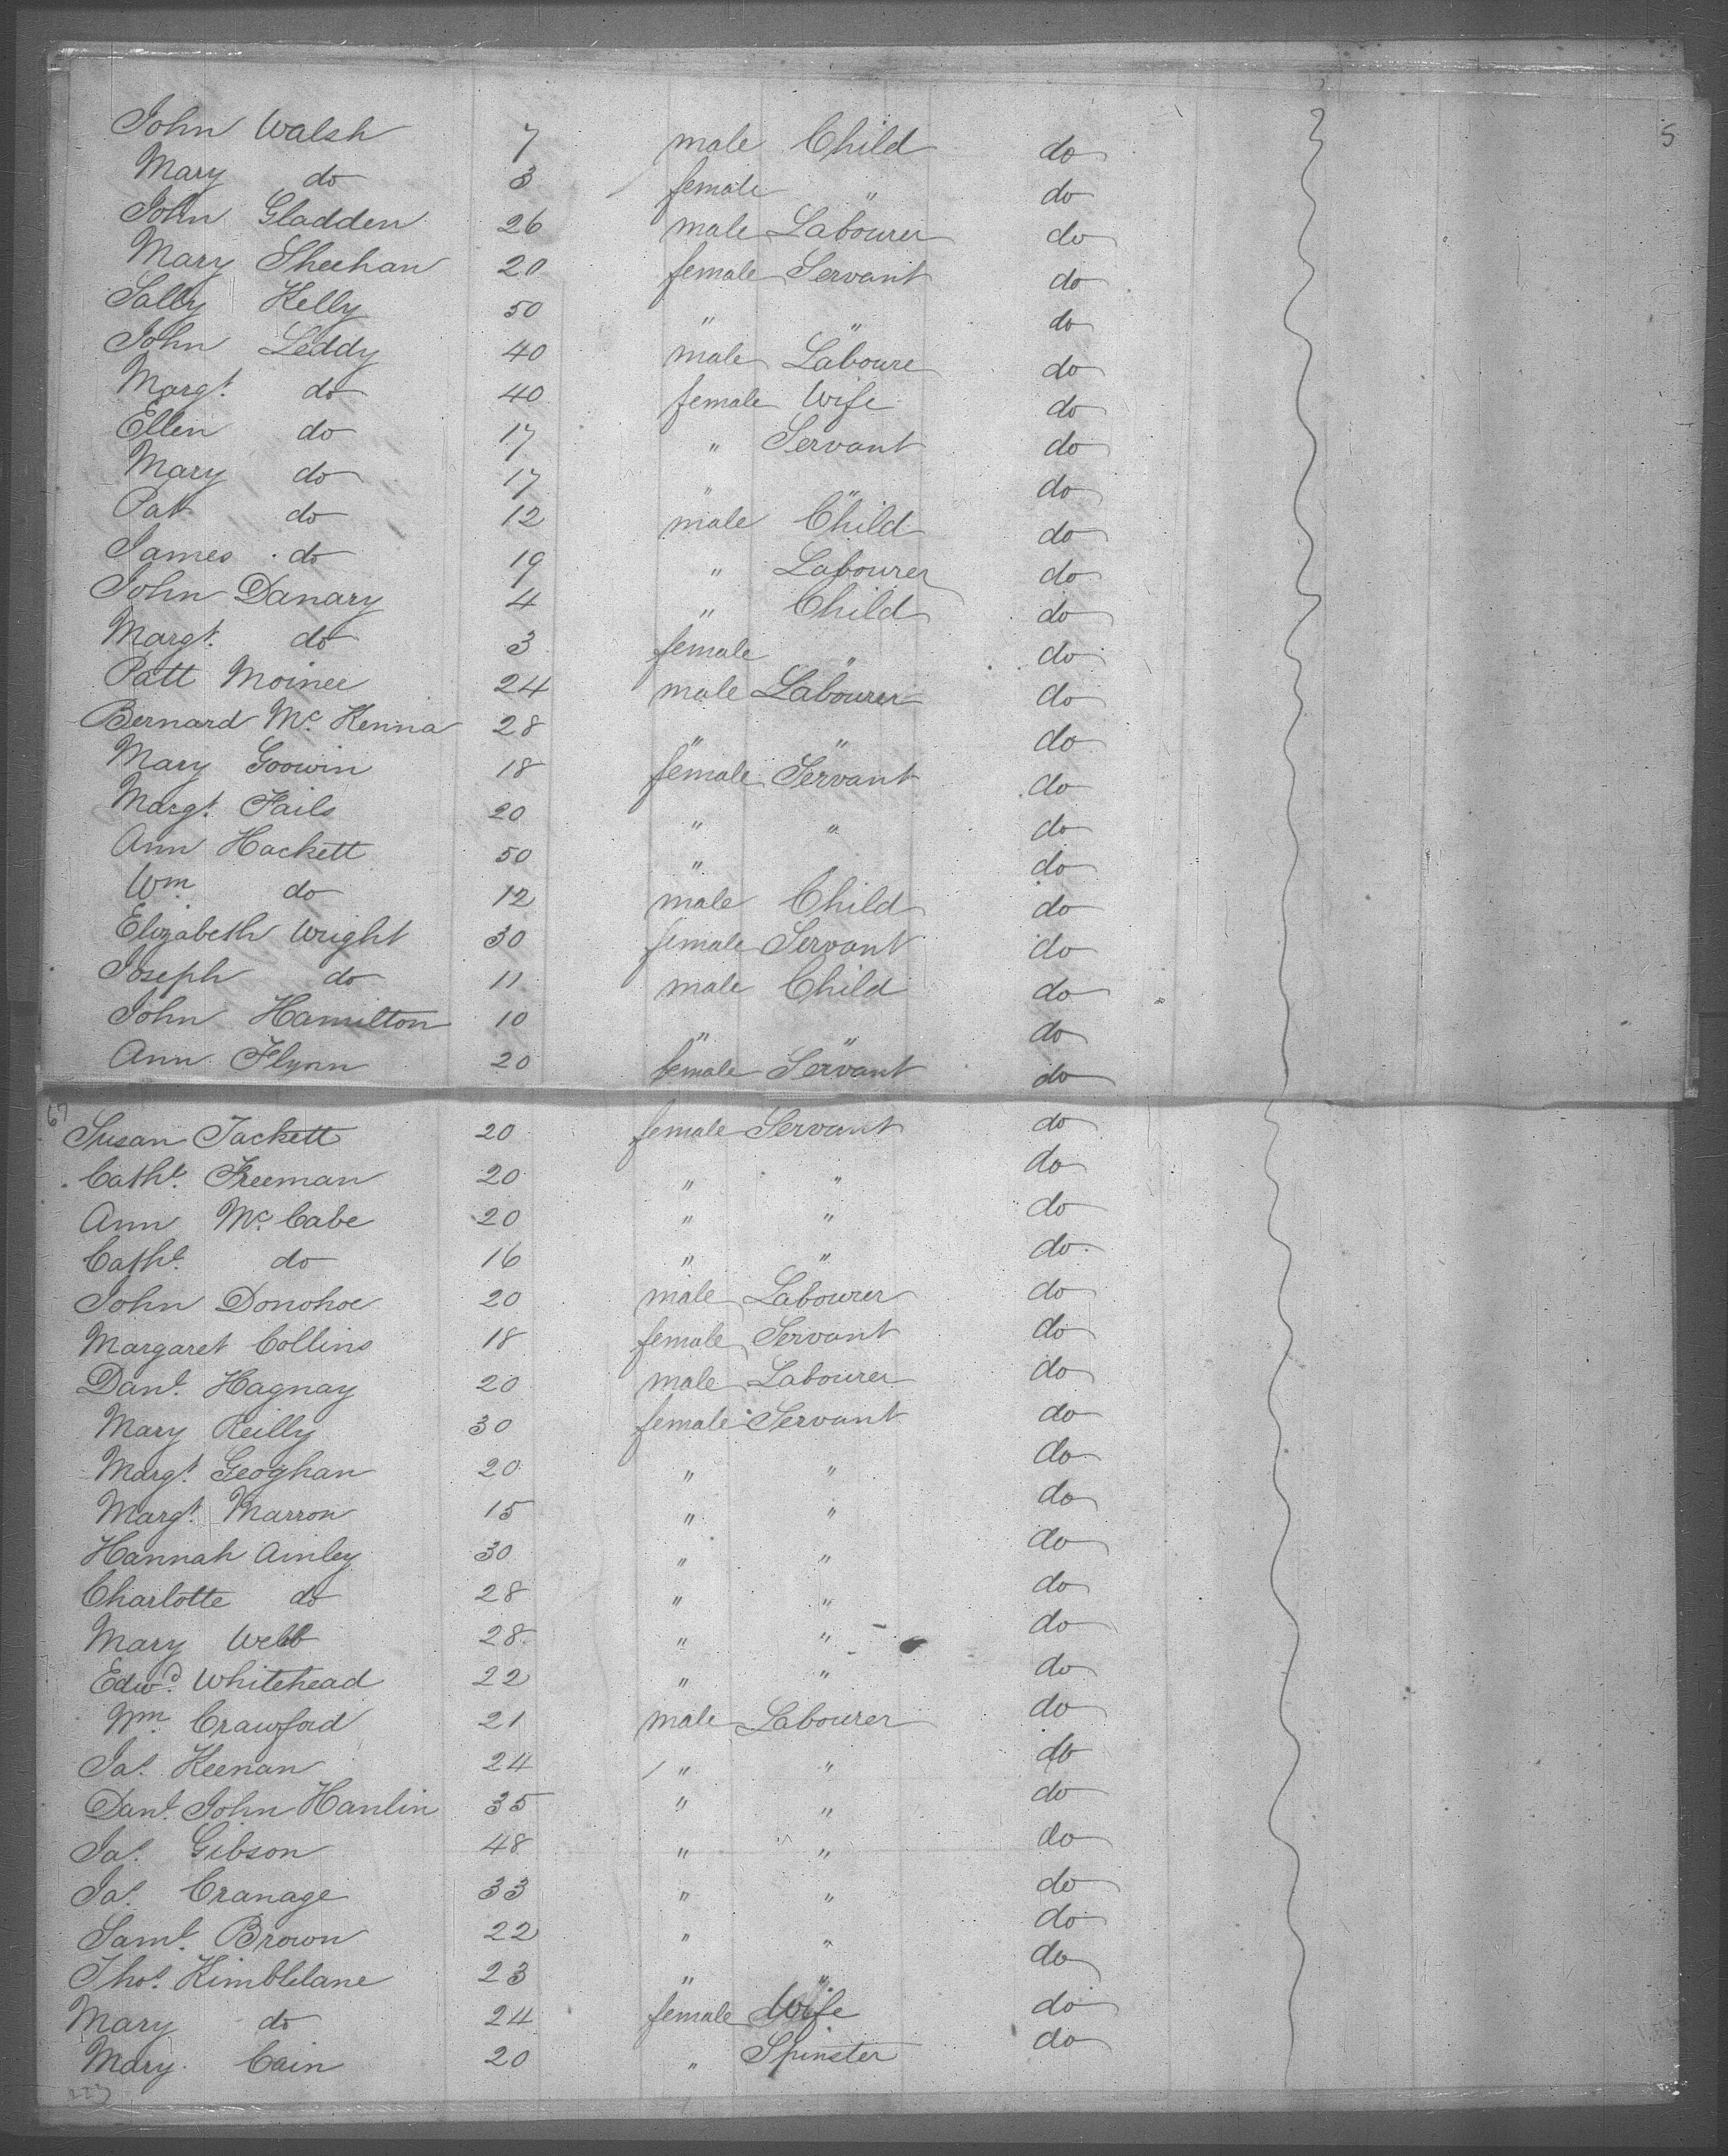 5
John Walsh 7 male Child do
Mary do 3 female " do
John Gladden 26 male Labourer do
Mary Sheehan 20 female Servant do
Sally Kelly 50 " " do
John Leddy 40 male Laboure do
Margt. do 40 female Wife do
Ellen do 17 " Servant do
Mary do 17 " " do
Pat do 12 male Child do
James do 19 " Labourer do
John Danary 4 " Child do
Margt. do 3 female " do
Patt Moinee 24 male Labourer do
Bernard Mc. Kenna 28 " " do
Mary Goowin 18 female Servant do
Margt. Fails 20 " " do
Ann Hackett 50 " do
Wm. do 12 male Child do
Elizabeth Wright 30 female Servant do
Joseph do 11 male Child do
John Hamilton 10 " " do
Ann Flynn 20 female Servant do
67
Susan Tackett 20 female Servant do
Cathe. Freeman 20 " " do
Ann Mc. Cabe 20 " " do
Cathe. do 16 " " do
John Donohoe 20 male Labourer do
Margaret Collins 18 female Servant do
Danl. Hagnay 20 male Labourer do
Mary Reilly 30 female Servant do
Margt. Geoghan 20 " " do
Margt. Marron 15 " " do
Hannah Ainley 30 " " do
Charlotte do 28 " " do
Mary Webb 28 " " do
Edwd. Whitehead 22 " " do
Wm. Crawford 21 male Labourer do
Jas. Keenan 24 " " do
Danl. John Hanlin 35 " " do
Jas. Gibson 48 " " do
Jas. Cranage 33 " " do
Saml. Brown 22 " " do
Thos. Kimblelane 23 " " do
Mary do 24 female Wife do
Mary Cain 20 " Spinster do